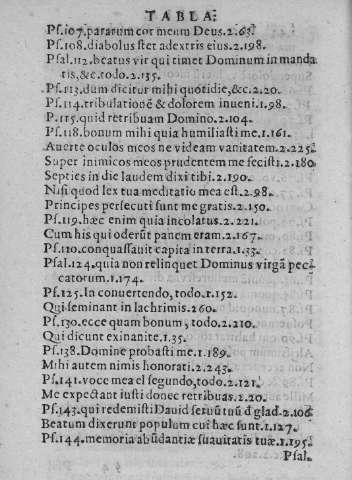 TABLA.
Ps.107.paratum cor meum Deus.2.63.
Ps.108.diabolus stet adextris eius.2.198.
Psal.112.beatus vir qui timet Dominum in manda
tis,&c.todo.2.135.
Ps.113.dum dicitur mihi quotidie,&c.2.20.
Ps.114.tribulationẽ & dolorem inueni.1.98.
P.115.quid retribuam Domino.2.104.
Ps.118.bonum mihi quia humiliasti me.1.161.
Auerte oculos meos ne videam vanitatem.2.225.
Super inimicos meos prudentem me fecisti.2.180
Septies in die laudem dixi tibi.2.190.
Nisi quod lex tua meditatio mea est.2.98.
Principes persecuti sunt me gratis.2.150.
Ps.119.hæc enim quia incolatus.2.221.
Cum his qui oderũt panem eram.2.167.
Ps.110.conquassauit capita in terra.1.33.
Psal.124.quia non relinquet Dominus virgã pec
catorum.1.174.
Ps.125.In conuertendo,todo.1.152.
Qui seminant in lachrimis.260.
Ps.130.ecce quam bonum, todo.2.210.
Qui dicunt exinanite.1.35.
Ps.138.Domine probasti me.1.189.
Mihi autem nimis honorati.2.243.
Ps.141.voce mea el segundo,todo.2.121.
Me expectant iusti donec retribuas.2.20.
Ps.143.qui redemisti Dauid seruũ tuũ d̃ glad.2.106
Beatum dixerunt populum cui hæc sunt.1.127.
Ps.144.memoria abũdantiæ suauitatis tuæ.1.195.
Psal.